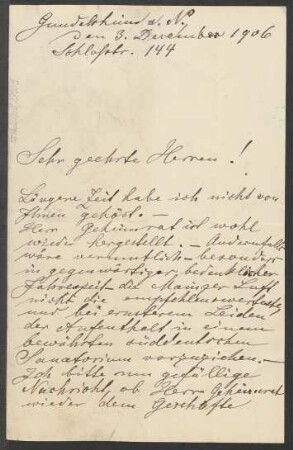 Gundelsheim a. N.
den 3. Dezember 1906
Schloßstr. 144
Sehr geehrte Herren!
Längere Zeit habe ich nicht von
Ihnen gehört. —
Herr Geheimrat ist wohl
wieder hergestellt. — Andernfalls
wäre vermutlich — besonders
in gegenwärtiger, bedenklicher
Jahreszeit die Mainzer Luft
nicht die empfehlenswerteste
und bei ernsterem Leiden
der Aufenthalt in einem
bewährten süddeutschen
Sanatorium vorzuziehen. —
Ich bitte nun gefällige
Nachricht, ob Herr Geheimrat
wieder dem Geschäfte